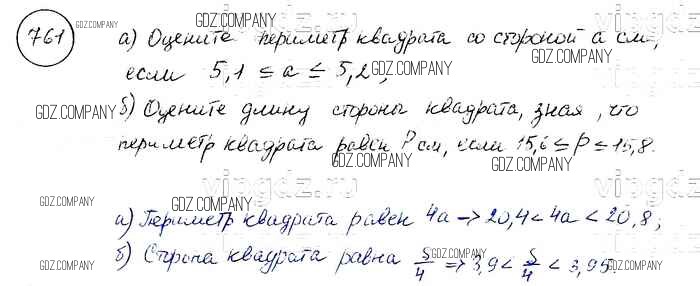 761
а) Оцените периметр квадрата со стороной а см,
если 5,1 ≤ a ≤ 5,2;
б) Оцените длину стороны квадрата, зная, что
периметр квадрата равен P см, если 15,6 ≤ P ≤ 15,8.
а) Периметр квадрата равен 4a → 20,4 < 4a < 20,8;
б) Сторона квадрата равна S/4 ⇒ 3,9 < S/4 < 3,95.
GDZ.COMPANY
GDZ.COMPANY
GDZ.COMPANY
GDZ.COMPANY
GDZ.COMPANY
GDZ.COMPANY
GDZ.COMPANY
GDZ.COMPANY
GDZ.COMPANY
GDZ.COMPANY
GDZ.COMPANY
GDZ.COMPANY
GDZ.COMPANY
GDZ.COMPANY